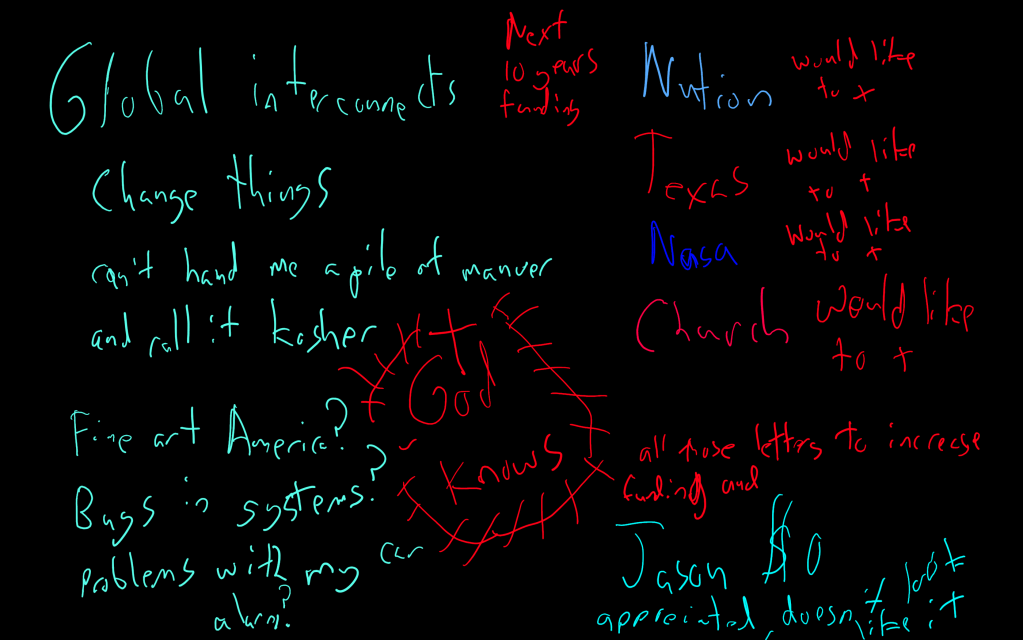 Global interconnects
Change things
can't hand me a pile of manuer
and call it kosher
Fine art America?
Bugs in systems?
problems with my car
alarm?
Next
10 years
funding
God
knows
Nation would like
to +
Texas would like
to +
Nasa would like
to +
Church would like
to +
all those letters to increase
funding and
Jason $0
appreciated doesn't look
like it